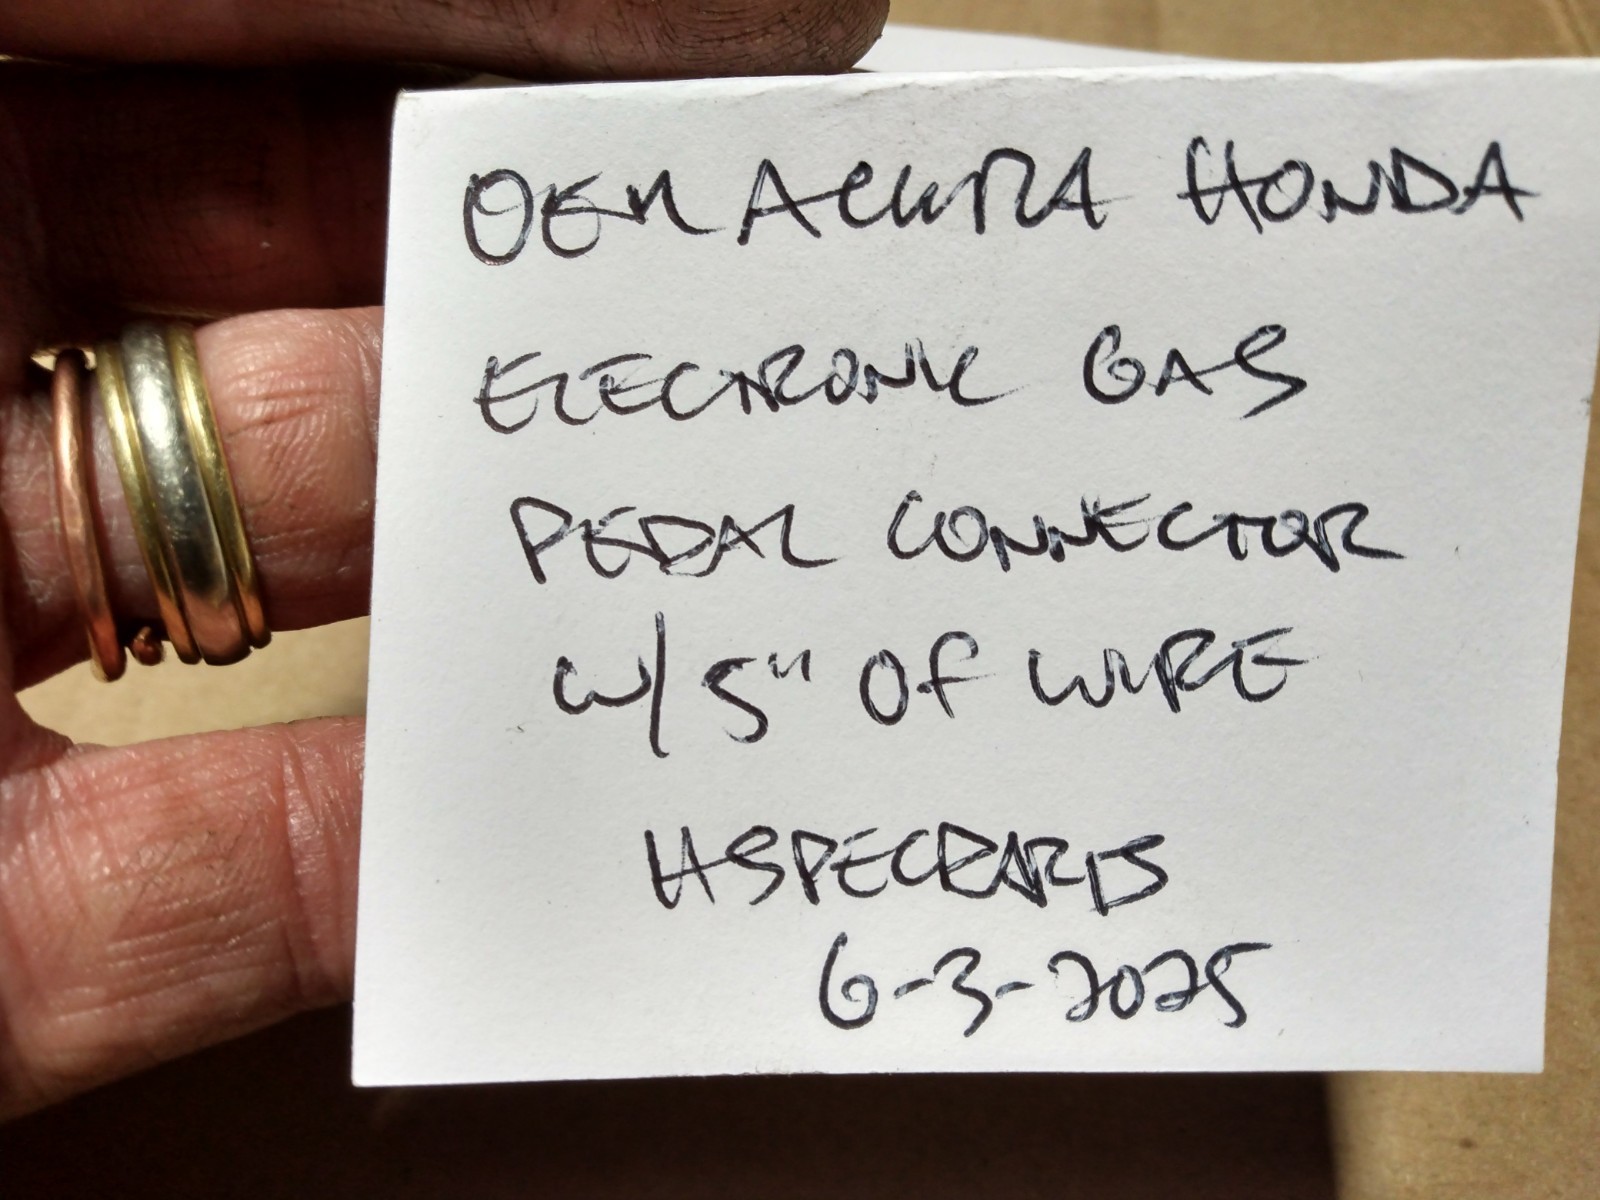 OEM ACURA HONDA
ELECTRONIC GAS
PEDAL CONNECTOR
W/ 5" OF WIRE
HSPECPARTS
6-3-2025